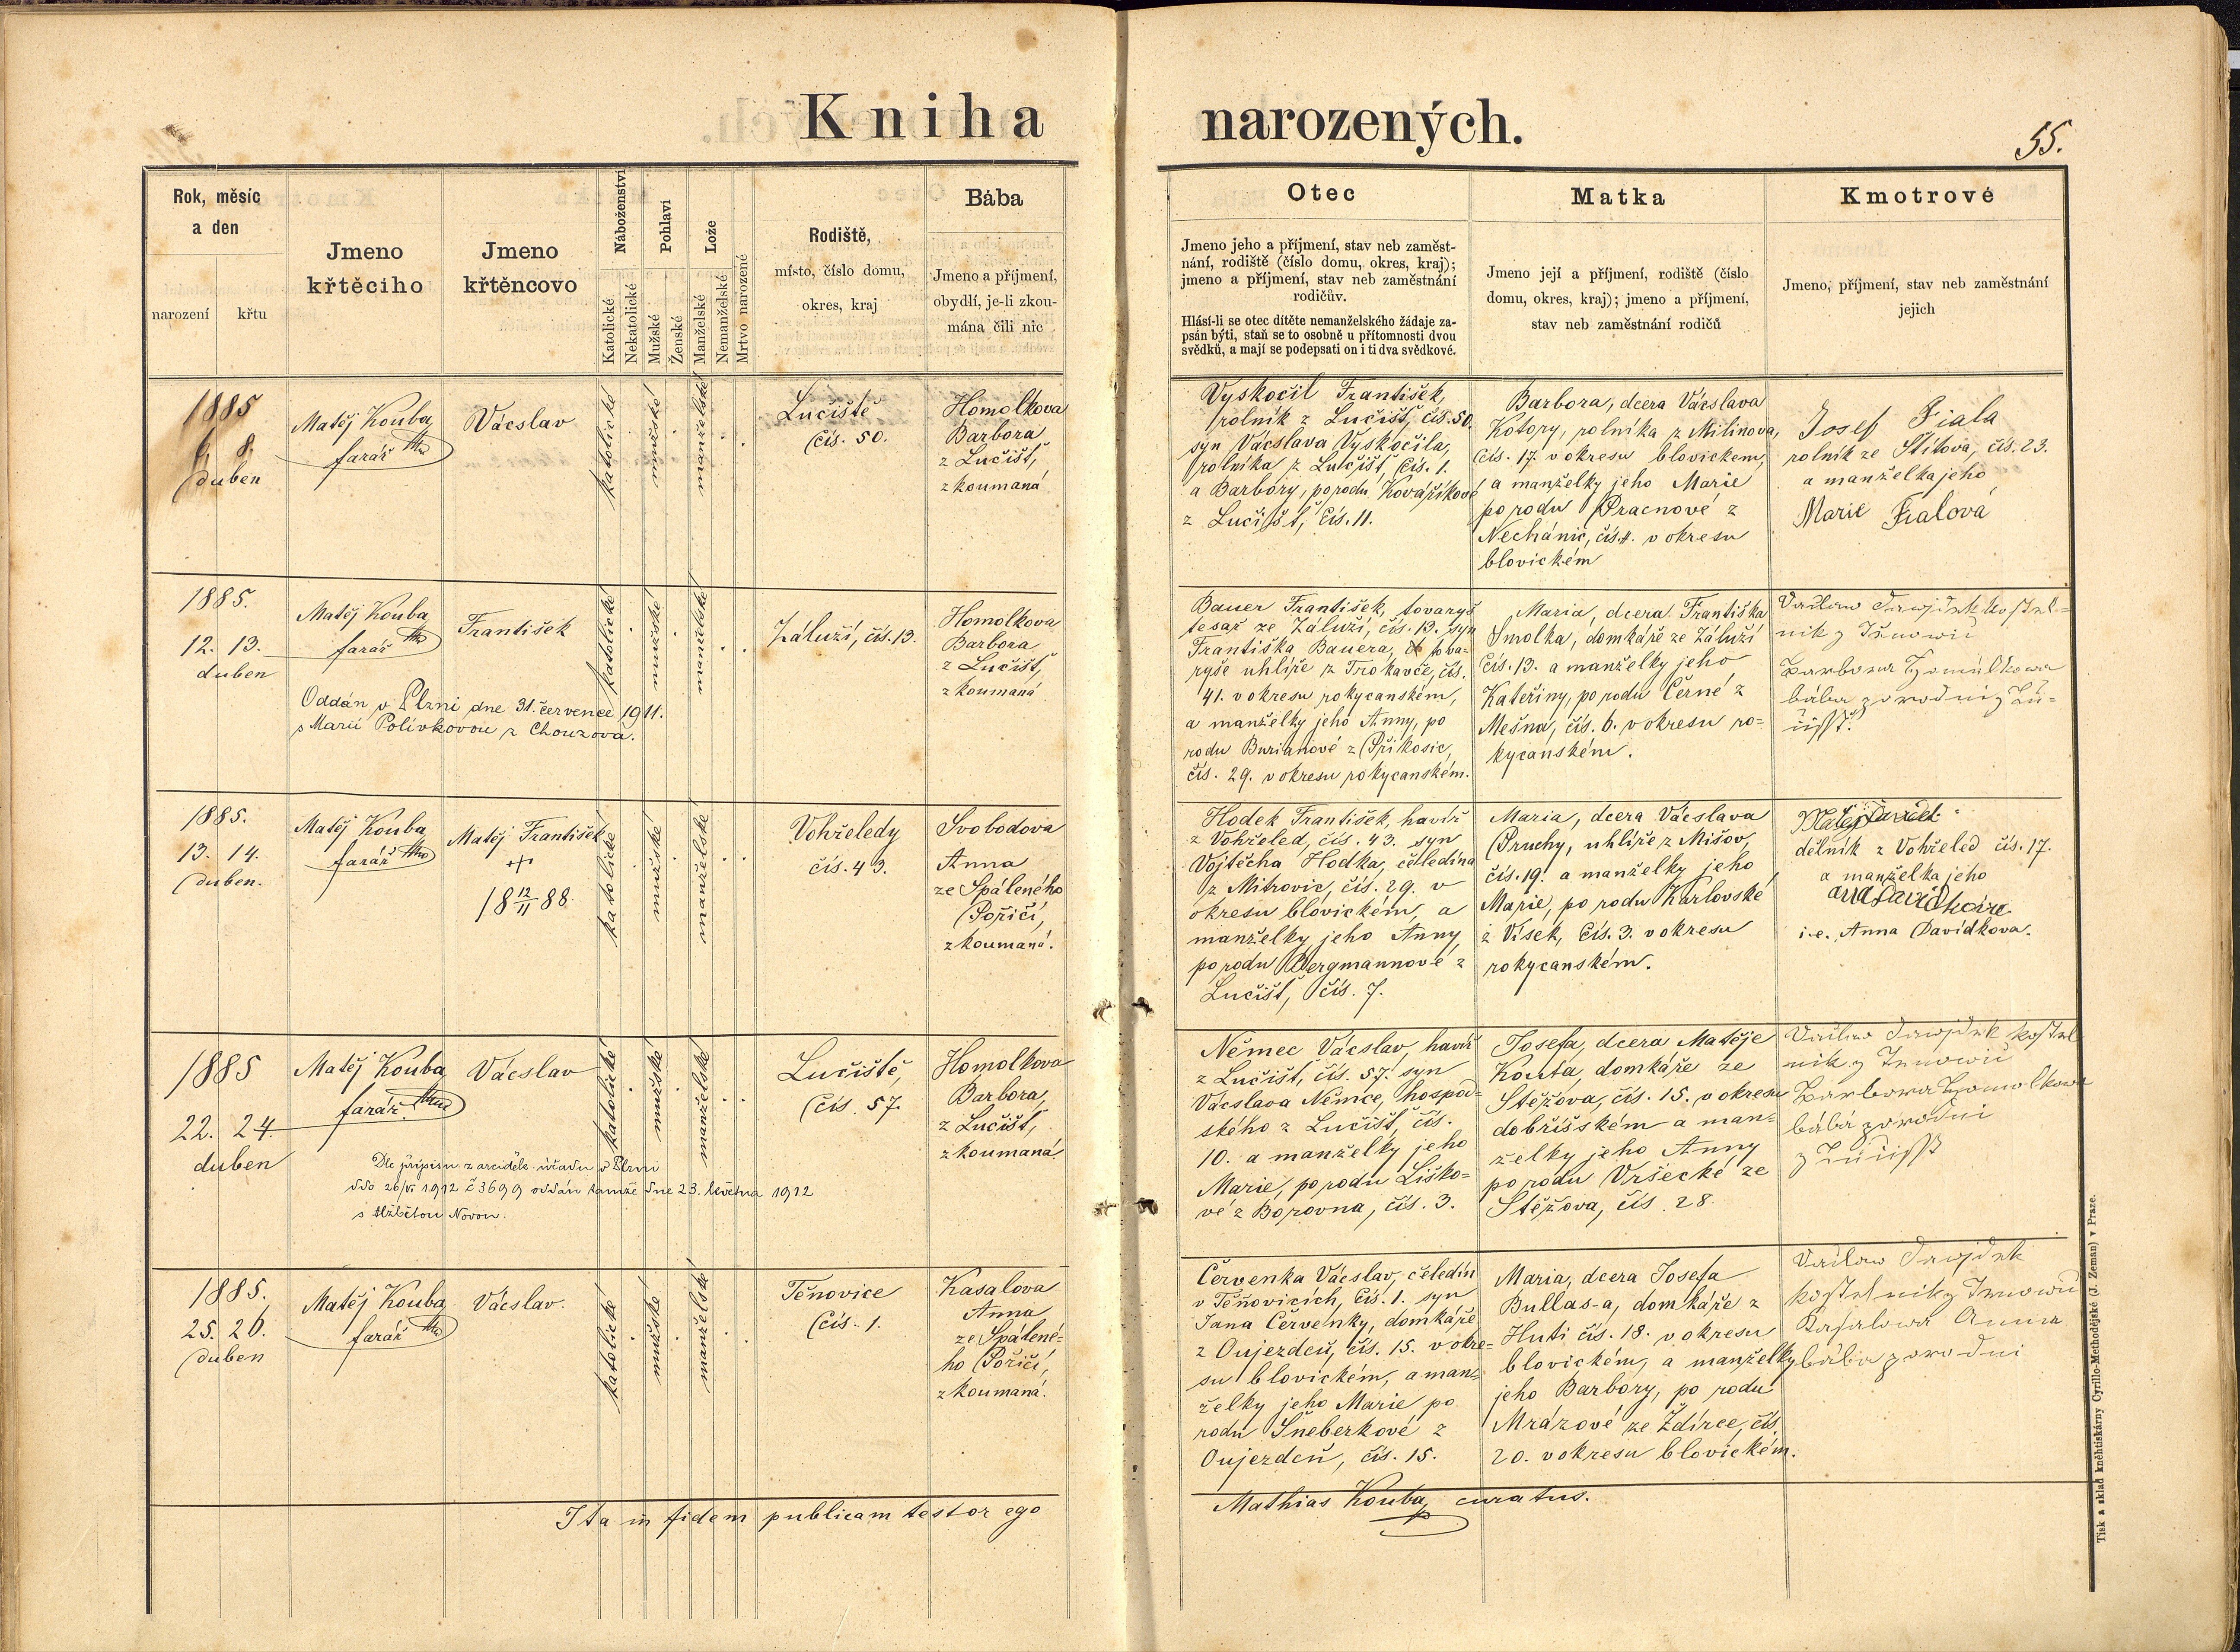 Kniha narozených.
55.
Rok, měsíc
a den
narození
křtu
Jmeno
křtěciho
Jmeno
křtěncovo
Náboženství
Katolické
Nekatolické
Pohlaví
Mužské
Ženské
Lože
Manželské
Nemanželské
Mrtvo narozené
Rodiště,
místo, číslo domu,
okres, kraj
Bába
Jmeno a příjmení,
obydlí, je-li zkou-
mána čili nic
Otec
Jmeno jeho a příjmení, stav neb zaměst-
nání, rodiště (číslo domu, okres, kraj);
jmeno a příjmení, stav neb zaměstnání
rodičův.
Hlásí-li se otec dítěte nemanželského žádaje za-
psán býti, staň se to osobně u přítomnosti dvou
svědků, a mají se podepsati on i ti dva svědkové.
Matka
Jmeno její a příjmení, rodiště (číslo
domu, okres, kraj); jmeno a příjmení,
stav neb zaměstnání rodičů
Kmotrové
Jmeno, příjmení, stav neb zaměstnání
jejich
1885
8.
duben
Matěj Kouba
farář
Vácslav
katolické
mužské
manželské
Lučiště
čís. 50.
Homolkova
Barbora
z Lučišť,
zkoumaná
Vyskočil František,
rolník z Lučišť, čís. 50.
syn Vácslava Vyskočila,
rolníka z Lučišť, čís. 1.
a Barbory, po rodu Kovaříkové
z Lučišť, čís. 11.
Barbora, dcera Vácslava
Kotory, rolníka z Milinova,
čís. 17. v okresu blovickém,
a manželky jeho Marie
po rodu Pracnové z
Nechánic, čís. 4. v okresu
blovickém
Josef Fiala
rolník ze Štítova, čís. 23.
a manželka jeho
Marie Fialová
1885.
12. 13.
duben
Matěj Kouba
farář
František
katolické
mužské
manželské
Záluží, čís. 13.
Homolkova
Barbora
z Lučišť,
zkoumaná
Oddán v Plzni dne 31. července 1911.
s Marií Polívkovou z Chouzova.
Bauer František, tovaryš
tesař ze Záluží, čís. 13. syn
Františka Bauera, tova-
ryše uhlíře z Trokavče, čís.
41. v okresu rokycanském,
a manželky jeho Anny, po
rodu Burianové z Příkosic,
čís. 29. v okresu rokycanském.
Maria, dcera Františka
Smolka, domkáře ze Záluží
čís. 13. a manželky jeho
Kateřiny, po rodu Černé z
Mešna, čís. 6. v okresu ro-
kycanském.
bába
1885.
13. 14.
duben.
Matěj Kouba
farář
Matěj František
+
18 12/11 88
katolické
mužské
manželské
Vohřeledy
čís. 43.
Svobodova
Anna
ze Spáleného
Poříčí,
zkoumaná.
Hodek František, havíř
z Vohřeled, čís. 43. syn
Vojtěcha Hodka, čeledína
z Mitrovic, čís. 29. v
okresu blovickém, a
manželky jeho Anny,
po rodu Bergmannové z
Lučišť, čís. 7.
Maria, dcera Vácslava
Pruchy, uhlíře z Mišov,
čís. 19. a manželky jeho
Marie, po rodu Karlovské
z Vísek, čís. 3. v okresu
rokycanském.
dělník z Vohřeled čís. 17.
a manželka jeho
i. e. Anna Davídkova.
1885
22. 24.
duben
Matěj Kouba
farář
Vácslav
katolické
mužské
manželské
Lučiště,
čís. 57.
Homolkova
Barbora,
z Lučišť,
zkoumaná
Dle přípisu z arciděk. úřadu v Plzni
ddo 26/VI 1912 č 3699 oddán tamže dne 23. května 1912
s Alžbětou Novou.
Němec Vácslav, havíř
z Lučišť, čís. 57. syn
Vácslava Němce, hospod-
ského z Lučišť, čís.
10. a manželky jeho
Marie, po rodu Liško-
vé z Borovna, čís. 3.
Josefa, dcera Matěje
Kouta, domkáře ze
Stěžova, čís. 15. v okresu
dobříšském a man-
želky jeho Anny
po rodu Vršecké ze
Stěžova, čís. 28.
bába
1885.
25. 26.
duben
Matěj Kouba
farář
Vácslav.
katolické
mužské
manželské
Těňovice
čís. 1.
Kasalova
Anna
ze Spálené-
ho Poříčí,
zkoumaná.
Červenka Vácslav, čeledín
v Těňovicích, čís. 1. syn
Jana Červenky, domkáře
z Oujezdců, čís. 15. v okre-
su blovickém, a man-
želky jeho Marie po
rodu Šneberkové z
Oujezdců, čís. 15.
Maria, dcera Josefa
Bullas-a, domkáře z
Huti čís. 18. v okresu
blovickém, a manželky
jeho Barbory, po rodu
Mrázové ze Ždírce, čís.
20. v okresu blovickém.
Kasalowa Anna
bába
Ita in fidem publicam testor ego
Mathias Kouba, curatus.
Tisk a sklad kněhtiskárny Cyrillo-Methodějské (J. Zeman) v Praze.